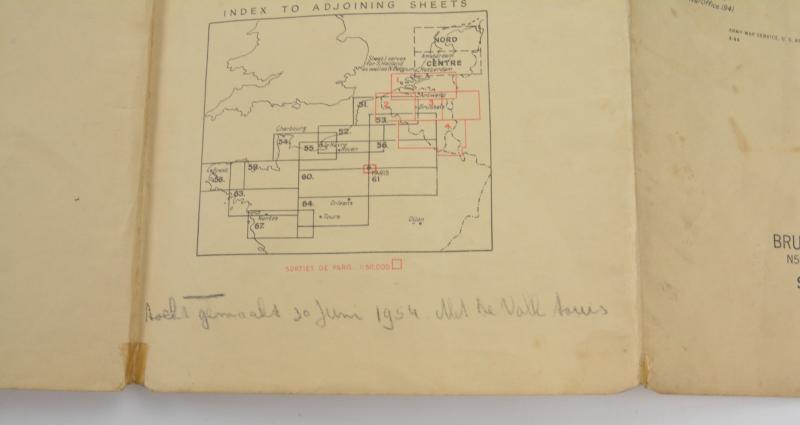 INDEX TO ADJOINING SHEETS
NORD
CENTRE
Amsterdam
Rotterdam
Sheet 1 serves
for S. Holland
as well as N. Belgium
1.
Antwerp
2.
3.
Brussels
4.
51.
53.
52.
Cherbourg
54.
55.
Le Havre
Rouen
56.
Brest
58.
59.
60.
PARIS
61
63.
64.
Orléans
Tours
Nantes
67.
Dijon
SORTIES DE PARIS 1:50,000
tocht gemaakt 30 Juni 1954. Met de Volk tours
War Office (94)
ARMY MAP SERVICE, U. S. A
BRU
N5